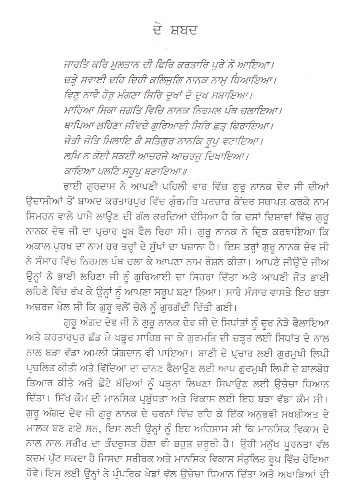 ਦੋ ਸ਼ਬਦ
ਜਾਰਤਿ ਕਰਿ ਮੁਲਤਾਨ ਦੀ ਫਿਰਿ ਕਰਤਾਰਿ ਪੁਰੇ ਨੋ ਆਇਆ।
ਚੜ੍ਹੇ ਸਵਾਈ ਦਹਿ ਦਿਹੀ ਕਲਿਜੁਗਿ ਨਾਨਕ ਨਾਮੁ ਧਿਆਇਆ।
ਵਿਣੁ ਨਾਵੈ ਹੋਰੁ ਮੰਗਣਾ ਸਿਰਿ ਦੁਖਾਂ ਦੇ ਦੁਖ ਸਬਾਇਆ।
ਮਾਰਿਆ ਸਿਕਾ ਜਗਤਿ ਵਿਚਿ ਨਾਨਕ ਨਿਰਮਲ ਪੰਥ ਚਲਾਇਆ।
ਥਾਪਿਆ ਲਹਿਣਾ ਜੀਂਵਦੇ ਗੁਰਿਆਈ ਸਿਰਿ ਛਤ੍ਰ ਫਿਰਾਇਆ।
ਜੋਤੀ ਜੋਤਿ ਮਿਲਾਇ ਕੈ ਸਤਿਗੁਰ ਨਾਨਕਿ ਰੂਪੁ ਵਟਾਇਆ।
ਲਖਿ ਨ ਕੋਈ ਸਕਈ ਆਚਰਜੇ ਆਚਰਜੁ ਦਿਖਾਇਆ।
ਕਾਇਆ ਪਲਟਿ ਸਰੂਪੁ ਬਣਾਇਆ॥
ਭਾਈ ਗੁਰਦਾਸ ਨੇ ਆਪਣੀ ਪਹਿਲੀ ਵਾਰ ਵਿੱਚ ਗੁਰੂ ਨਾਨਕ ਦੇਵ ਜੀ ਦੀਆਂ
ਉਦਾਸੀਆਂ ਤੋਂ ਬਾਅਦ ਕਰਤਾਰਪੁਰ ਵਿੱਚ ਗੁਰਮਤਿ ਪਰਚਾਰ ਕੇਂਦਰ ਸਥਾਪਤ ਕਰਕੇ ਨਾਮ
ਸਿਮਰਨ ਵਾਲੇ ਪਾਸੇ ਲਾਉਣ ਦੀ ਗੱਲ ਕਰਦਿਆਂ ਦੱਸਿਆ ਹੈ ਕਿ ਦਸਾਂ ਦਿਸ਼ਾਵਾਂ ਵਿੱਚ ਗੁਰੂ
ਨਾਨਕ ਦੇਵ ਜੀ ਦਾ ਪ੍ਰਚਾਰ ਖੂਬ ਫੈਲ ਰਿਹਾ ਸੀ। ਗੁਰੂ ਨਾਨਕ ਨੇ ਦ੍ਰਿੜ ਕਰਵਾਇਆ ਕਿ
ਅਕਾਲ ਪੁਰਖ ਦਾ ਨਾਮ ਹਰ ਤਰ੍ਹਾਂ ਦੇ ਸੁੱਖਾਂ ਦਾ ਖਜ਼ਾਨਾ ਹੈ। ਇਸ ਤਰ੍ਹਾਂ ਗੁਰੂ ਨਾਨਕ ਦੇਵ ਜੀ
ਨੇ ਸੰਸਾਰ ਵਿੱਚ ਨਿਰਮਲ ਪੰਥ ਚਲਾ ਕੇ ਆਪਣਾ ਨਾਮ ਰੌਸ਼ਨ ਕੀਤਾ। ਆਪਣੇ ਜੀਉਂਦੇ ਜੀਅ
ਉਨ੍ਹਾਂ ਨੇ ਭਾਈ ਲਹਿਣਾ ਜੀ ਨੂੰ ਗੁਰਿਆਈ ਦਾ ਸਿਹਰਾ ਦਿੱਤਾ ਅਤੇ ਆਪਣੀ ਜੋਤ ਭਾਈ
ਲਹਿਣੇ ਵਿੱਚ ਰੱਖ ਕੇ ਉਨ੍ਹਾਂ ਨੂੰ ਆਪਣਾ ਸਰੂਪ ਬਣਾ ਲਿਆ। ਸਾਰੇ ਸੰਸਾਰ ਵਾਸਤੇ ਇਹ ਬੜਾ
ਅਚਰਜ ਖੇਲ ਸੀ ਕਿ ਗੁਰੂ ਵਲੋਂ ਚੇਲੇ ਨੂੰ ਗੁਰਗੱਦੀ ਦਿੱਤੀ ਗਈ।
ਗੁਰੂ ਅੰਗਦ ਦੇਵ ਜੀ ਨੇ ਗੁਰੂ ਨਾਨਕ ਦੇਵ ਜੀ ਦੇ ਸਿਧਾਂਤਾਂ ਨੂੰ ਦੂਰ ਨੇੜੇ ਫੈਲਾਇਆ
ਅਤੇ ਕਰਤਾਰਪੁਰ ਛੱਡ ਕੇ ਖਡੂਰ ਸਾਹਿਬ ਜਾ ਕੇ ਗੁਰਮਤਿ ਦੀ ਚੜ੍ਹਤ ਲਈ ਸਿਧਾਂਤ ਦੇ ਨਾਲ
ਨਾਲ ਬੜਾ ਵੱਡਾ ਅਮਲੀ ਯੋਗਦਾਨ ਵੀ ਪਾਇਆ। ਬਾਣੀ ਦੇ ਪ੍ਰਚਾਰ ਲਈ ਗੁਰਮੁਖੀ ਲਿਪੀ
ਪ੍ਰਚਲਿਤ ਕੀਤੀ ਅਤੇ ਵਿੱਦਿਆ ਦਾ ਚਾਨਣ ਫੈਲਾਉਣ ਲਈ ਆਪ ਗੁਰਮੁਖੀ ਲਿਪੀ ਦੇ ਬਾਲਬੋਧ
ਤਿਆਰ ਕੀਤੇ ਅਤੇ ਛੋਟੇ ਬੱਚਿਆਂ ਨੂੰ ਪੜ੍ਹਨਾ ਲਿਖਣਾ ਸਿਖਾਉਣ ਲਈ ਉਚੇਚਾ ਧਿਆਨ
ਦਿੱਤਾ। ਸਿੱਖ ਕੌਮ ਦੀ ਮਾਨਸਿਕ ਪ੍ਰਬੁੱਧਤਾ ਅਤੇ ਵਿਕਾਸ ਲਈ ਇਹ ਬੜਾ ਵੱਡਾ ਕੰਮ ਸੀ।
ਗੁਰੂ ਅੰਗਦ ਦੇਵ ਜੀ ਗੁਰੂ ਨਾਨਕ ਦੇ ਚਰਨਾਂ ਵਿੱਚ ਰਹਿ ਕੇ ਇੱਕ ਅਨੁਭਵੀ ਸਖਸ਼ੀਅਤ ਦੇ
ਮਾਲਕ ਬਣ ਗਏ ਸਨ, ਇਸ ਲਈ ਉਨ੍ਹਾਂ ਨੂੰ ਇਹ ਅਹਿਸਾਸ ਸੀ ਕਿ ਮਾਨਸਿਕ ਵਿਕਾਸ ਦੇ
ਨਾਲ ਨਾਲ ਸਰੀਰ ਦਾ ਤੰਦਰੁਸਤ ਹੋਣਾ ਵੀ ਬਹੁਤ ਜ਼ਰੂਰੀ ਹੈ। ਉਹੀ ਮਨੁੱਖ ਪੂਰਨਤਾ ਵੱਲ
ਕਦਮ ਪੁੱਟ ਸਕਦਾ ਹੈ ਜਿਸਦਾ ਸਰੀਰਕ ਅਤੇ ਮਾਨਸਿਕ ਵਿਕਾਸ ਸੰਤੁਲਿਤ ਰੂਪ ਵਿੱਚ ਹੋਇਆ
ਹੋਵੇ। ਇਸ ਲਈ ਉਨ੍ਹਾਂ ਨੇ ਪ੍ਰੰਪਰਿਕ ਖੇਡਾਂ ਵੱਲ ਉਚੇਚਾ ਧਿਆਨ ਦਿੱਤਾ ਅਤੇ ਅਖਾੜਿਆਂ ਦੀ